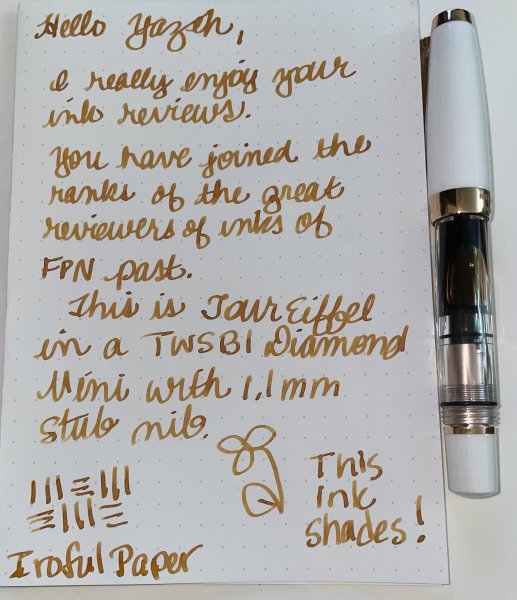 Hello Yazeh,
I really enjoy your
ink reviews.
You have joined the
ranks of the great
reviewers of inks of
FPN past.
This is Tour Eiffel
in a TWSBI Diamond
Mini with 1.1mm
stub nib.
This
ink
shades!
Iroful Paper